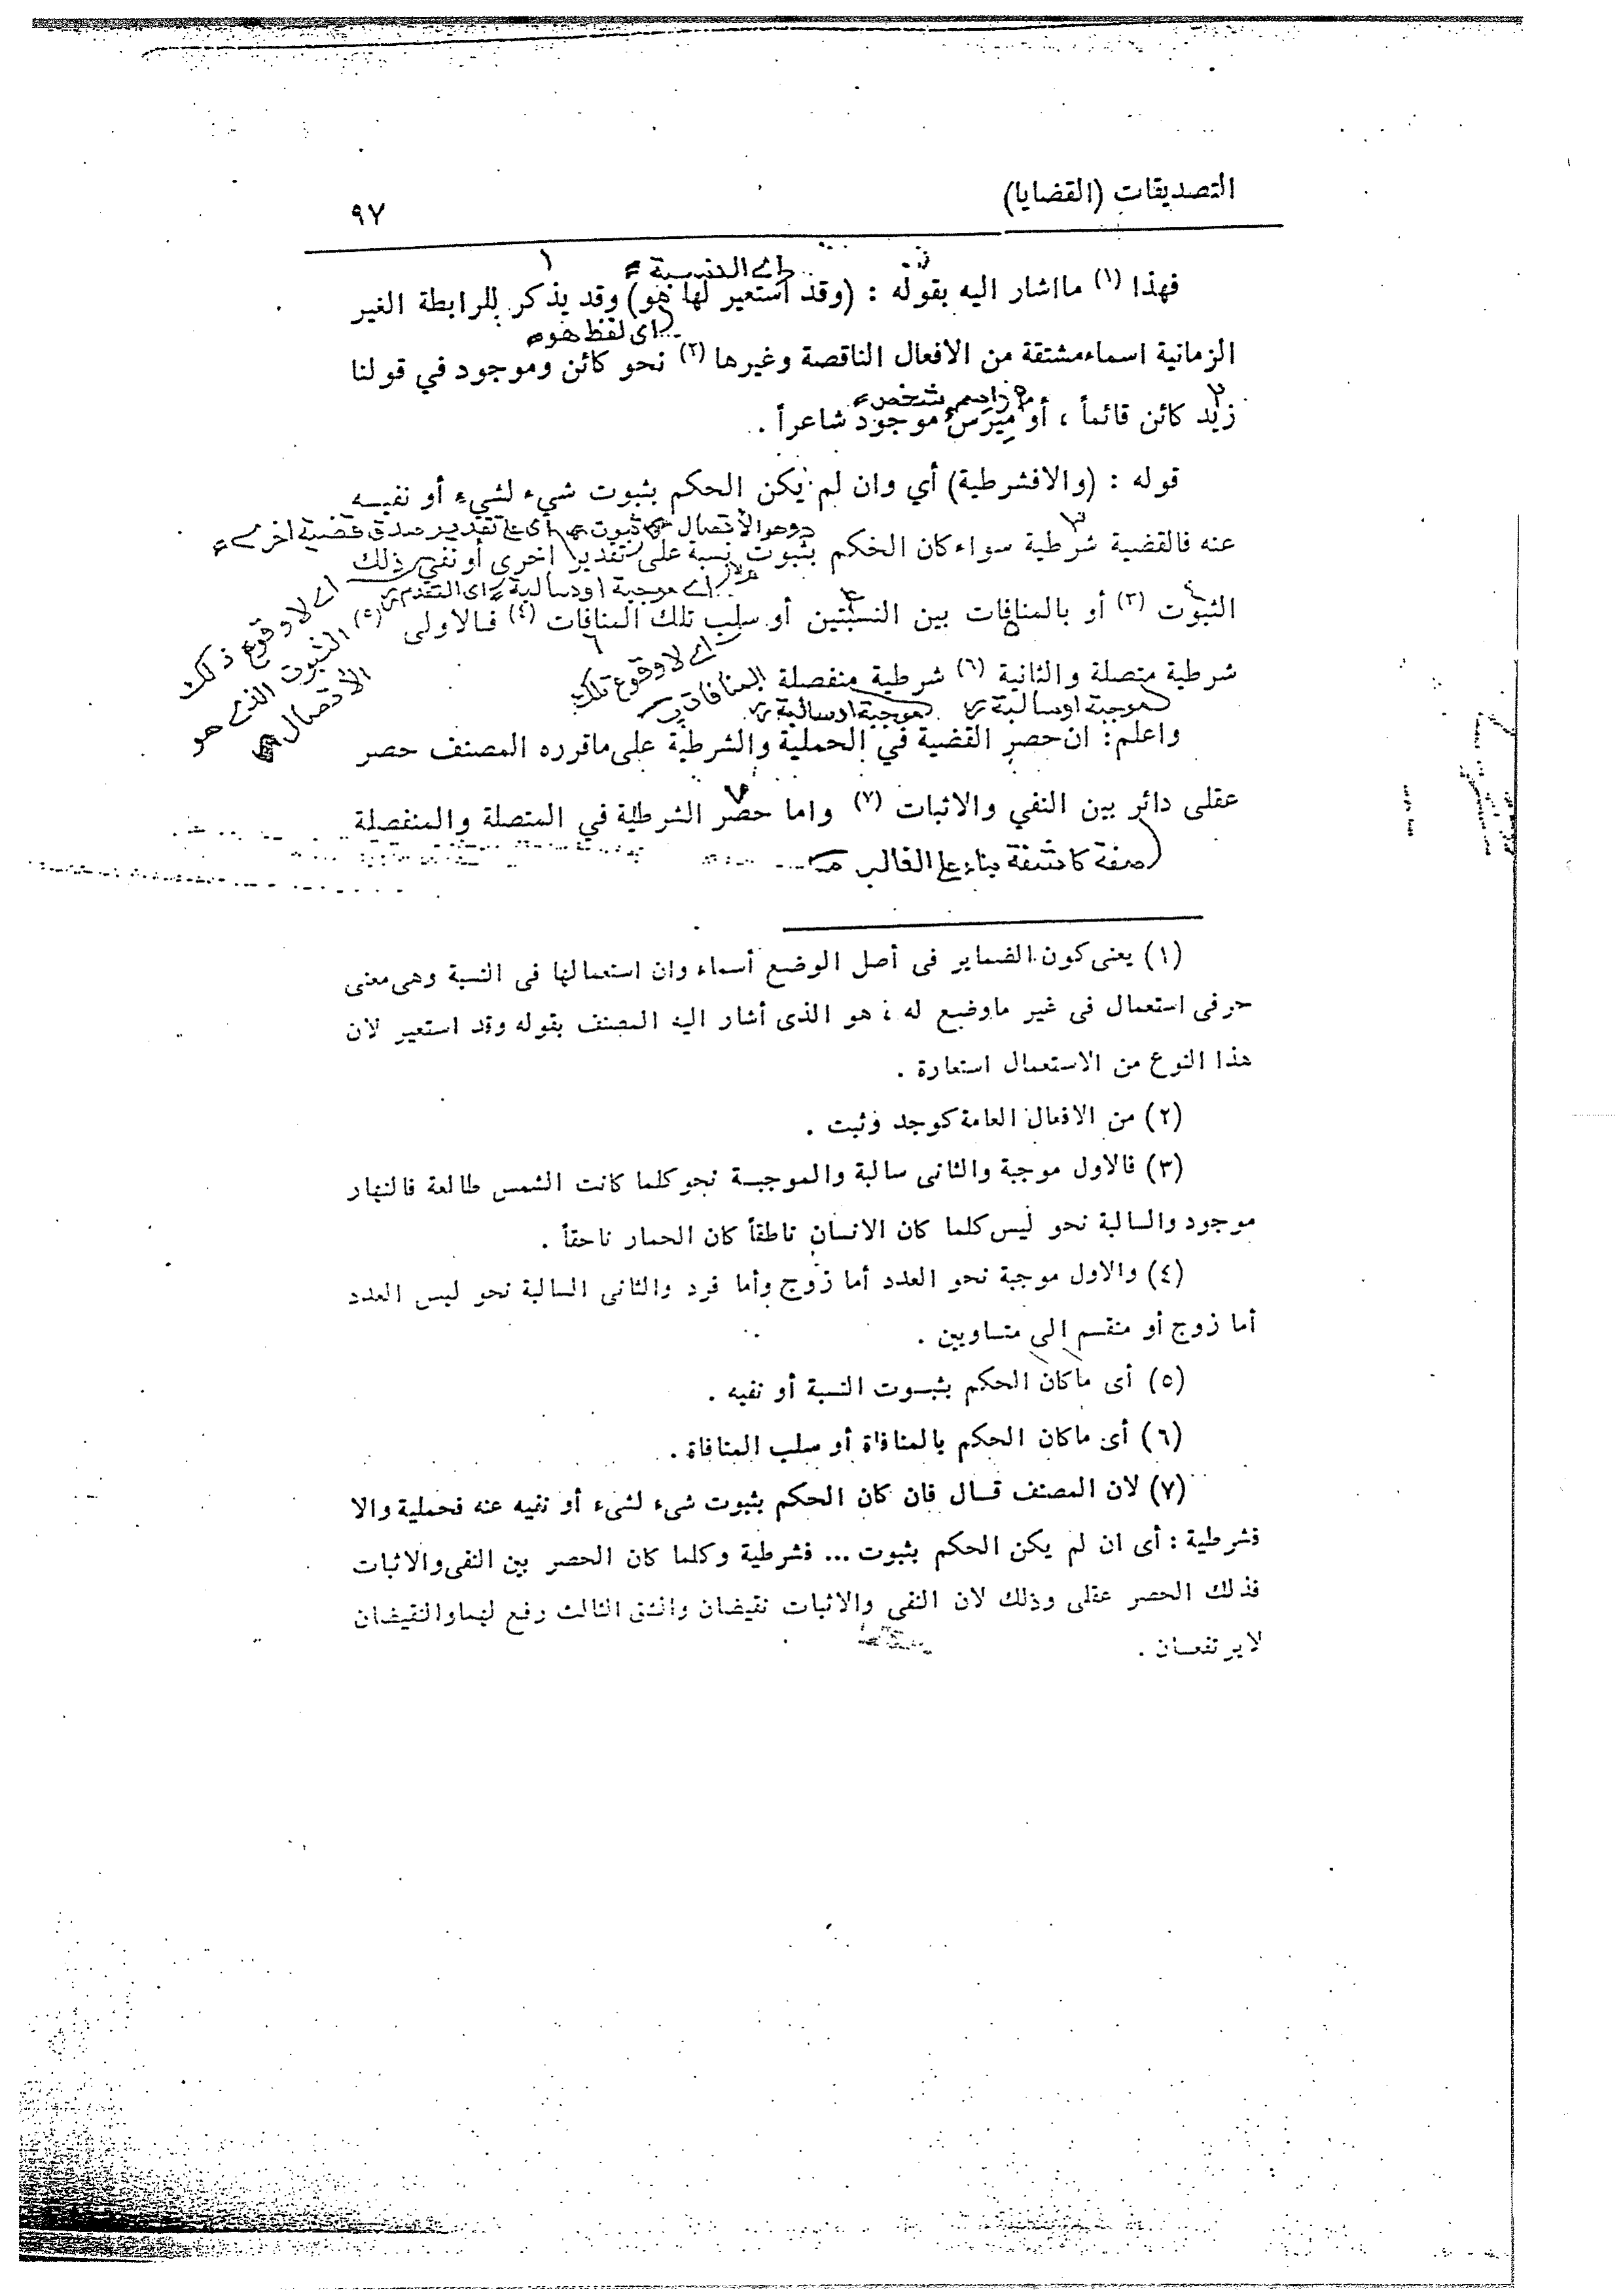 التصديقات (القضايا)
٩٧
اى النسبة
فهذا (١) مااشار اليه بقوله : (وقد استعير لها هو) وقد يذكر للرابطة الغير
اى لفظ هو
الزمانية اسماءمشتقة من الافعال الناقصة وغيرها (٢) نحو كائن وموجود في قولنا
اسم شخص
زيد كائن قائماً ، أو أميرس موجود شاعراً .
قوله : (والافشرطية) أي وان لم يكن الحكم بثبوت شيء لشيء أو نفيــه
وهو الأتصال
ثبوت
اى على تقدير صدق قضية اخرى
عنه فالقضية شرطية سواءكان الحكم بثبوت نسبة على تقدير اخرى أو نفي ذلك
اى موجبة او سالبة
اى المتقدم
الثبوت (٣) أو بالمنافات بين النسبتين أو سلب تلك المنافات (٤) فـالاولى (٥)
اى لا وقوع ذلك
الثبوت الذى هو
الأتصال
اى لا وقوع تلك
المنافات
شرطية متصلة والثانية (٦) شرطية منفصلة
موجبة او سالبة
موجبة او سالبة
واعلم: ان حصر القضية في الحملية والشرطية على ماقرره المصنف حصر
عقلى دائر بين النفي والاثبات (٧) واما حصر الشرطية في المتصلة والمنفصلة
صفة كاشفة بناء على الغالب
(١) يعنى كون الضماير فى أصل الوضع أسماء وان استعمالها فى النسبة وهى معنى
حرفى استعمال فى غير ماوضع له ، هو الذى أشار اليه المصنف بقوله وقد استعير لان
هذا النوع من الاستعمال استعارة .
(٢) من الافعال العامة كوجد وثبت .
(٣) فالاول موجبة والثانى سالبة والموجبــة نحو كلما كانت الشمس طالعة فالنهار
موجود والسالبة نحو ليس كلما كان الانسان ناطقاً كان الحمار ناحقاً .
(٤) والاول موجبة نحو العدد أما زوج وأما فرد والثانى السالبة نحو ليس العدد
أما زوج أو منقسم الى متساويين .
(٥) أى ماكان الحكم بثبــوت النسبة أو نفيه .
(٦) أى ماكان الحكم بالمنافاة أو سلب المنافاة .
(٧) لان المصنف قــال فان كان الحكم بثبوت شىء لشىء أو نفيه عنه فحملية والا
فشرطية : أى ان لم يكن الحكم بثبوت ... فشرطية وكلما كان الحصر بين النفى والاثبات
فذلك الحصر عقلى وذلك لان النفى والاثبات نقيضان والشق الثالث رفع لهما والنقيضان
لايرتفعــان .